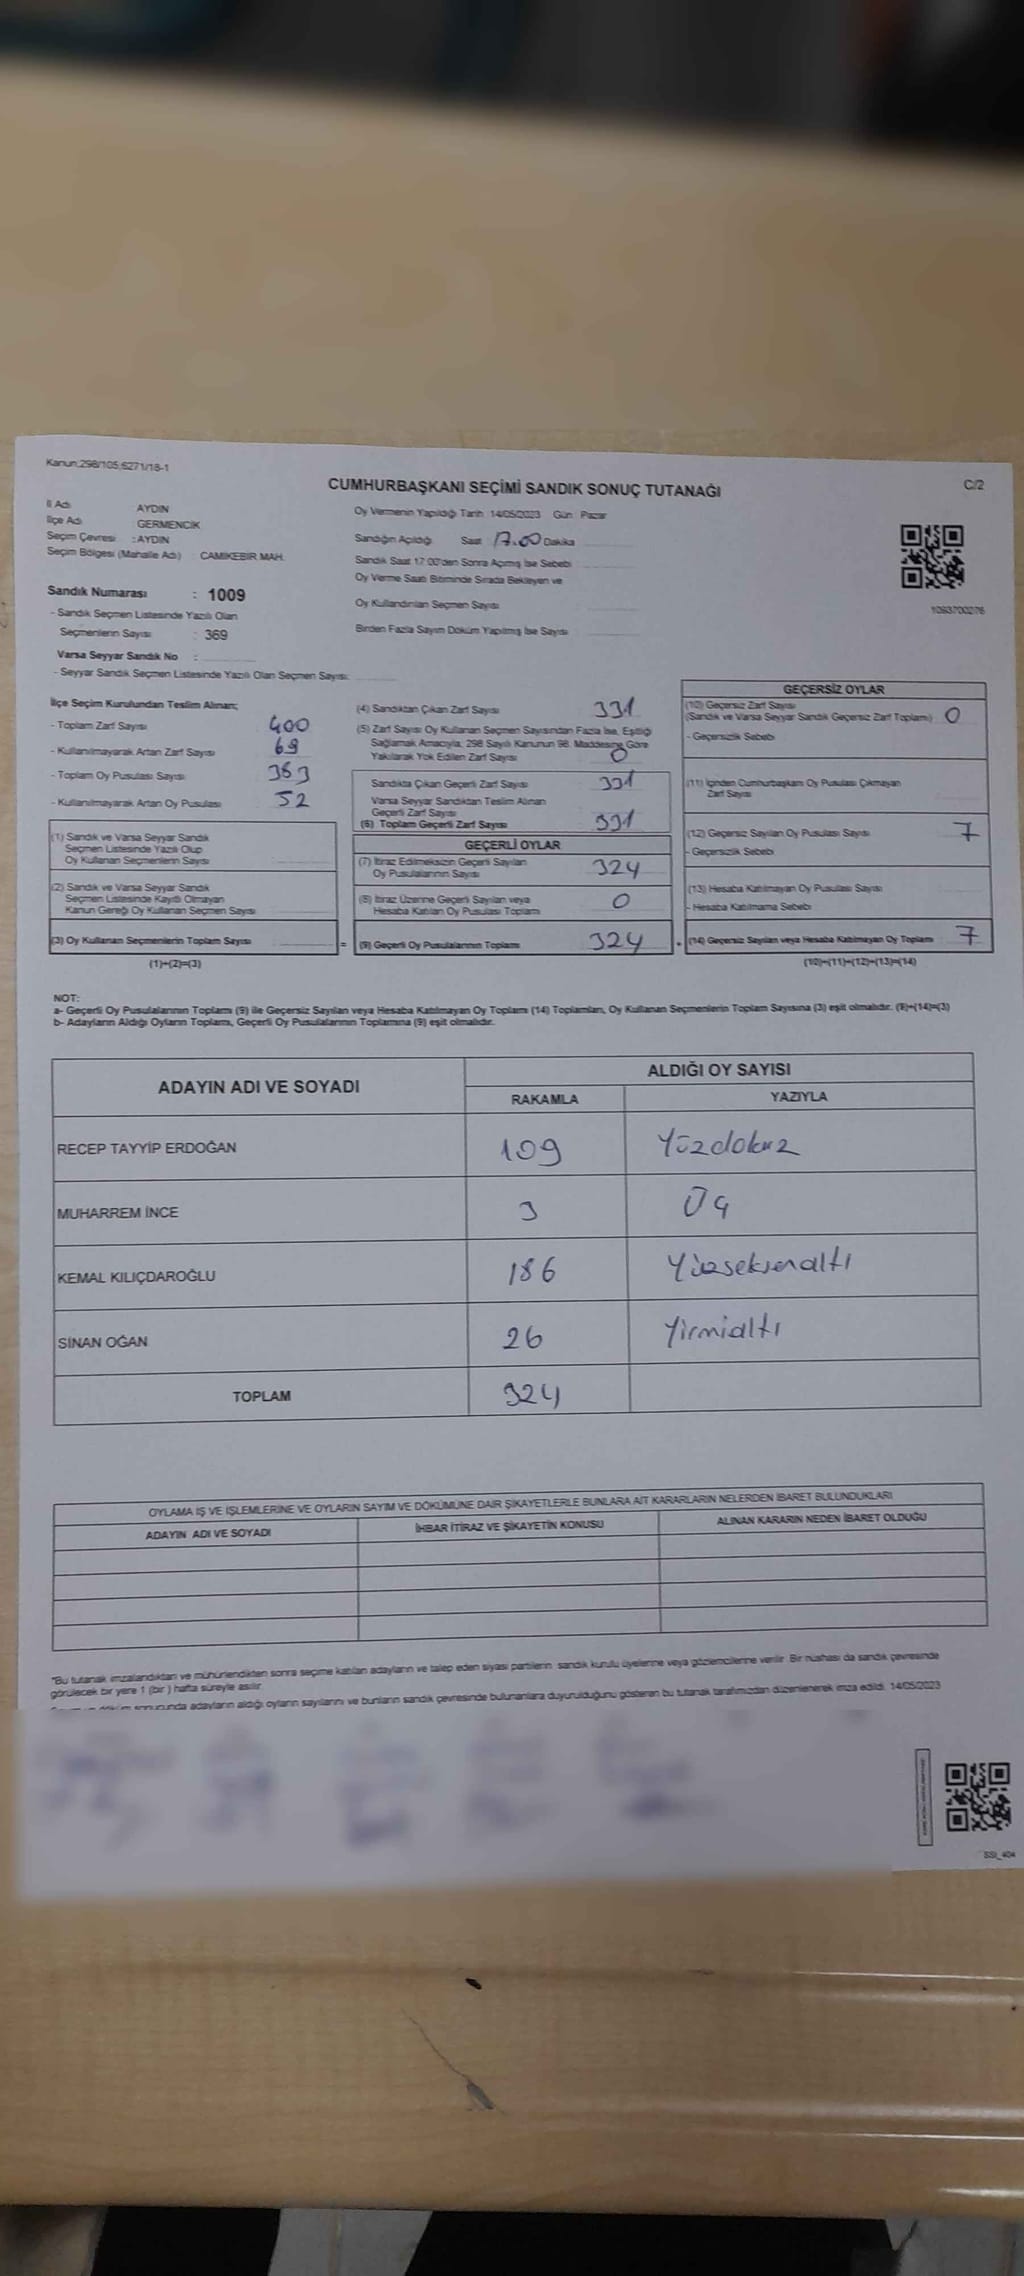 Kanun:298/105,6271/18-1
CUMHURBAŞKANI SEÇİMİ SANDIK SONUÇ TUTANAĞI
C/2
İl Adı AYDIN
İlçe Adı GERMENCİK
Seçim Çevresi : AYDIN
Seçim Bölgesi (Mahalle Adı) : CAMIKEBIR MAH.
Sandık Numarası : 1009
- Sandık Seçmen Listesinde Yazılı Olan
Seçmenlerin Sayısı : 369
Varsa Seyyar Sandık No :
- Seyyar Sandık Seçmen Listesinde Yazılı Olan Seçmen Sayısı:
Oy Vermenin Yapıldığı Tarih 14/05/2023 Gün : Pazar
Sandığın Açıldığı Saat 17.00 Dakika
Sandık Saat 17:00'den Sonra Açılmış İse Sebebi
Oy Verme Saati Bitiminde Sırada Bekleyen ve
Oy Kullandırılan Seçmen Sayısı
Birden Fazla Sayım Döküm Yapılmış İse Sayısı
1093700276
İlçe Seçim Kurulundan Teslim Alınan;
- Toplam Zarf Sayısı 400
- Kullanılmayarak Artan Zarf Sayısı 69
- Toplam Oy Pusulası Sayısı 383
- Kullanılmayarak Artan Oy Pusulası 52
(1) Sandık ve Varsa Seyyar Sandık
Seçmen Listesinde Yazılı Olup
Oy Kullanan Seçmenlerin Sayısı
(2) Sandık ve Varsa Seyyar Sandık
Seçmen Listesinde Kayıtlı Olmayan
Kanun Gereği Oy Kullanan Seçmen Sayısı
(3) Oy Kullanan Seçmenlerin Toplam Sayısı =
(1)+(2)=(3)
(4) Sandıktan Çıkan Zarf Sayısı 331
(5) Zarf Sayısı Oy Kullanan Seçmen Sayısından Fazla İse, Eşitliği
Sağlamak Amacıyla, 298 Sayılı Kanunun 98. Maddesine Göre
Yakılarak Yok Edilen Zarf Sayısı 0
Sandıkta Çıkan Geçerli Zarf Sayısı 331
Varsa Seyyar Sandıktan Teslim Alınan
Geçerli Zarf Sayısı
(6) Toplam Geçerli Zarf Sayısı 331
GEÇERLİ OYLAR
(7) İtiraz Edilmeksizin Geçerli Sayılan
Oy Pusulalarının Sayısı 324
(8) İtiraz Üzerine Geçerli Sayılan veya
Hesaba Katılan Oy Pusulası Toplamı 0
(9) Geçerli Oy Pusulalarının Toplamı 324 +
GEÇERSİZ OYLAR
(10) Geçersiz Zarf Sayısı
(Sandık ve Varsa Seyyar Sandık Geçersiz Zarf Toplamı) 0
- Geçersizlik Sebebi
(11) İçinden Cumhurbaşkanı Oy Pusulası Çıkmayan
Zarf Sayısı
(12) Geçersiz Sayılan Oy Pusulası Sayısı 7
- Geçersizlik Sebebi
(13) Hesaba Katılmayan Oy Pusulası Sayısı
- Hesaba Katılmama Sebebi
(14) Geçersiz Sayılan veya Hesaba Katılmayan Oy Toplamı 7
(10)+(11)+(12)+(13)=(14)
NOT:
a- Geçerli Oy Pusulalarının Toplamı (9) ile Geçersiz Sayılan veya Hesaba Katılmayan Oy Toplamı (14) Toplamları, Oy Kullanan Seçmenlerin Toplam Sayısına (3) eşit olmalıdır. (9)+(14)=(3)
b- Adayların Aldığı Oyların Toplamı, Geçerli Oy Pusulalarının Toplamına (9) eşit olmalıdır.
ADAYIN ADI VE SOYADI ALDIĞI OY SAYISI
RAKAMLA YAZIYLA
RECEP TAYYİP ERDOĞAN 109 Yüzdokuz
MUHARREM İNCE 3 Üç
KEMAL KILIÇDAROĞLU 186 Yüzseksenaltı
SİNAN OĞAN 26 Yirmialtı
TOPLAM 324
OYLAMA İŞ VE İŞLEMLERİNE VE OYLARIN SAYIM VE DÖKÜMÜNE DAİR ŞİKAYETLERLE BUNLARA AİT KARARLARIN NELERDEN İBARET BULUNDUKLARI
ADAYIN ADI VE SOYADI İHBAR İTİRAZ VE ŞİKAYETİN KONUSU ALINAN KARARIN NEDEN İBARET OLDUĞU
*Bu tutanak imzalandıktan ve mühürlendikten sonra seçime katılan adayların ve talep eden siyasi partilerin sandık kurulu üyelerine veya gözlemcilerine verilir. Bir nüshası da sandık çevresinde
görülecek bir yere 1 (bir ) hafta süreyle asılır.
döküm sonucunda adayların aldığı oyların sayılarını ve bunların sandık çevresinde bulunanlara duyurulduğunu gösteren bu tutanak tarafımızdan düzenlenerek imza edildi. 14/05/2023
SSI_404